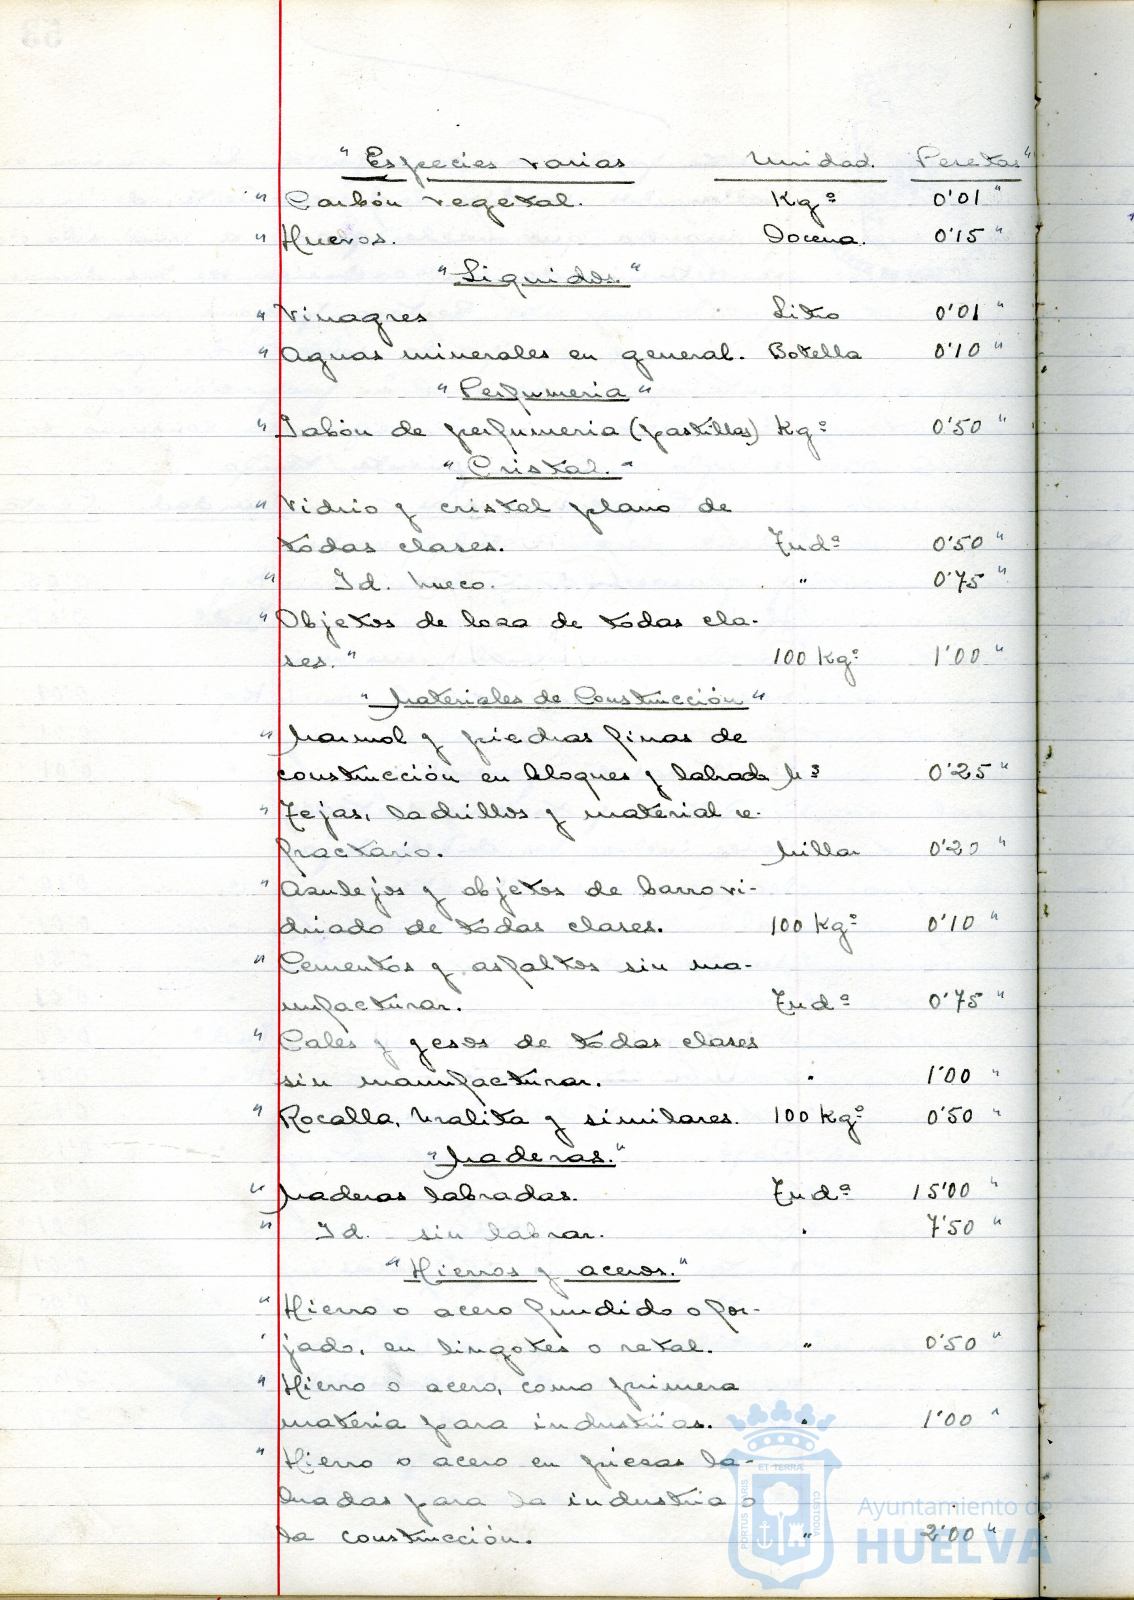 " Especies varias Unidad. Pesetas "
" Carbón vegetal. Kgº 0'01 "
" Huevos. Docena. 0'15 "
" Liquidos. "
" Vinagres Litro 0'01 "
" Aguas minerales en general. Botella 0'10 "
" Perfumeria "
" Jabón de perfumeria (pastillas) Kgº 0'50 "
" Cristal. "
" Vidrio y cristal plano de
todas clases. Tndª 0'50 "
" Id. hueco. " 0'75 "
" Objetos de loza de todas cla-
ses. " 100 Kgº 1'00 "
" Materiales de Construcción "
" Marmol y piedras finas de
construcción en bloques y labrada M³ 0'25 "
" Tejas, ladrillos y material re-
fractario. Millar 0'20 "
" Azulejos y objetos de barro vi-
driado de todas clases. 100 Kgº 0'10 "
" Cementos y asfaltos sin ma-
nufacturar. Tndª 0'75 "
" Cales y yesos de todas clases
sin manufacturar. " 1'00 "
" Rocalla, Uralita y similares. 100 Kgº 0'50 "
" Maderas. "
" Maderas labradas. Tndª 15'00 "
" Id. sin labrar. " 7'50 "
" Hierros y aceros. "
" Hierro o acero fundido o for-
jado, en lingotes o retal. " 0'50 "
" Hierro o acero, como primera
materia para industrias. " 1'00 "
" Hierro o acero en piezas la-
bradas para la industria o
la construcción. " 2'00 "
ET TERRÆ
PORTUS MARIS
CUSTODIA
Ayuntamiento de
HUELVA